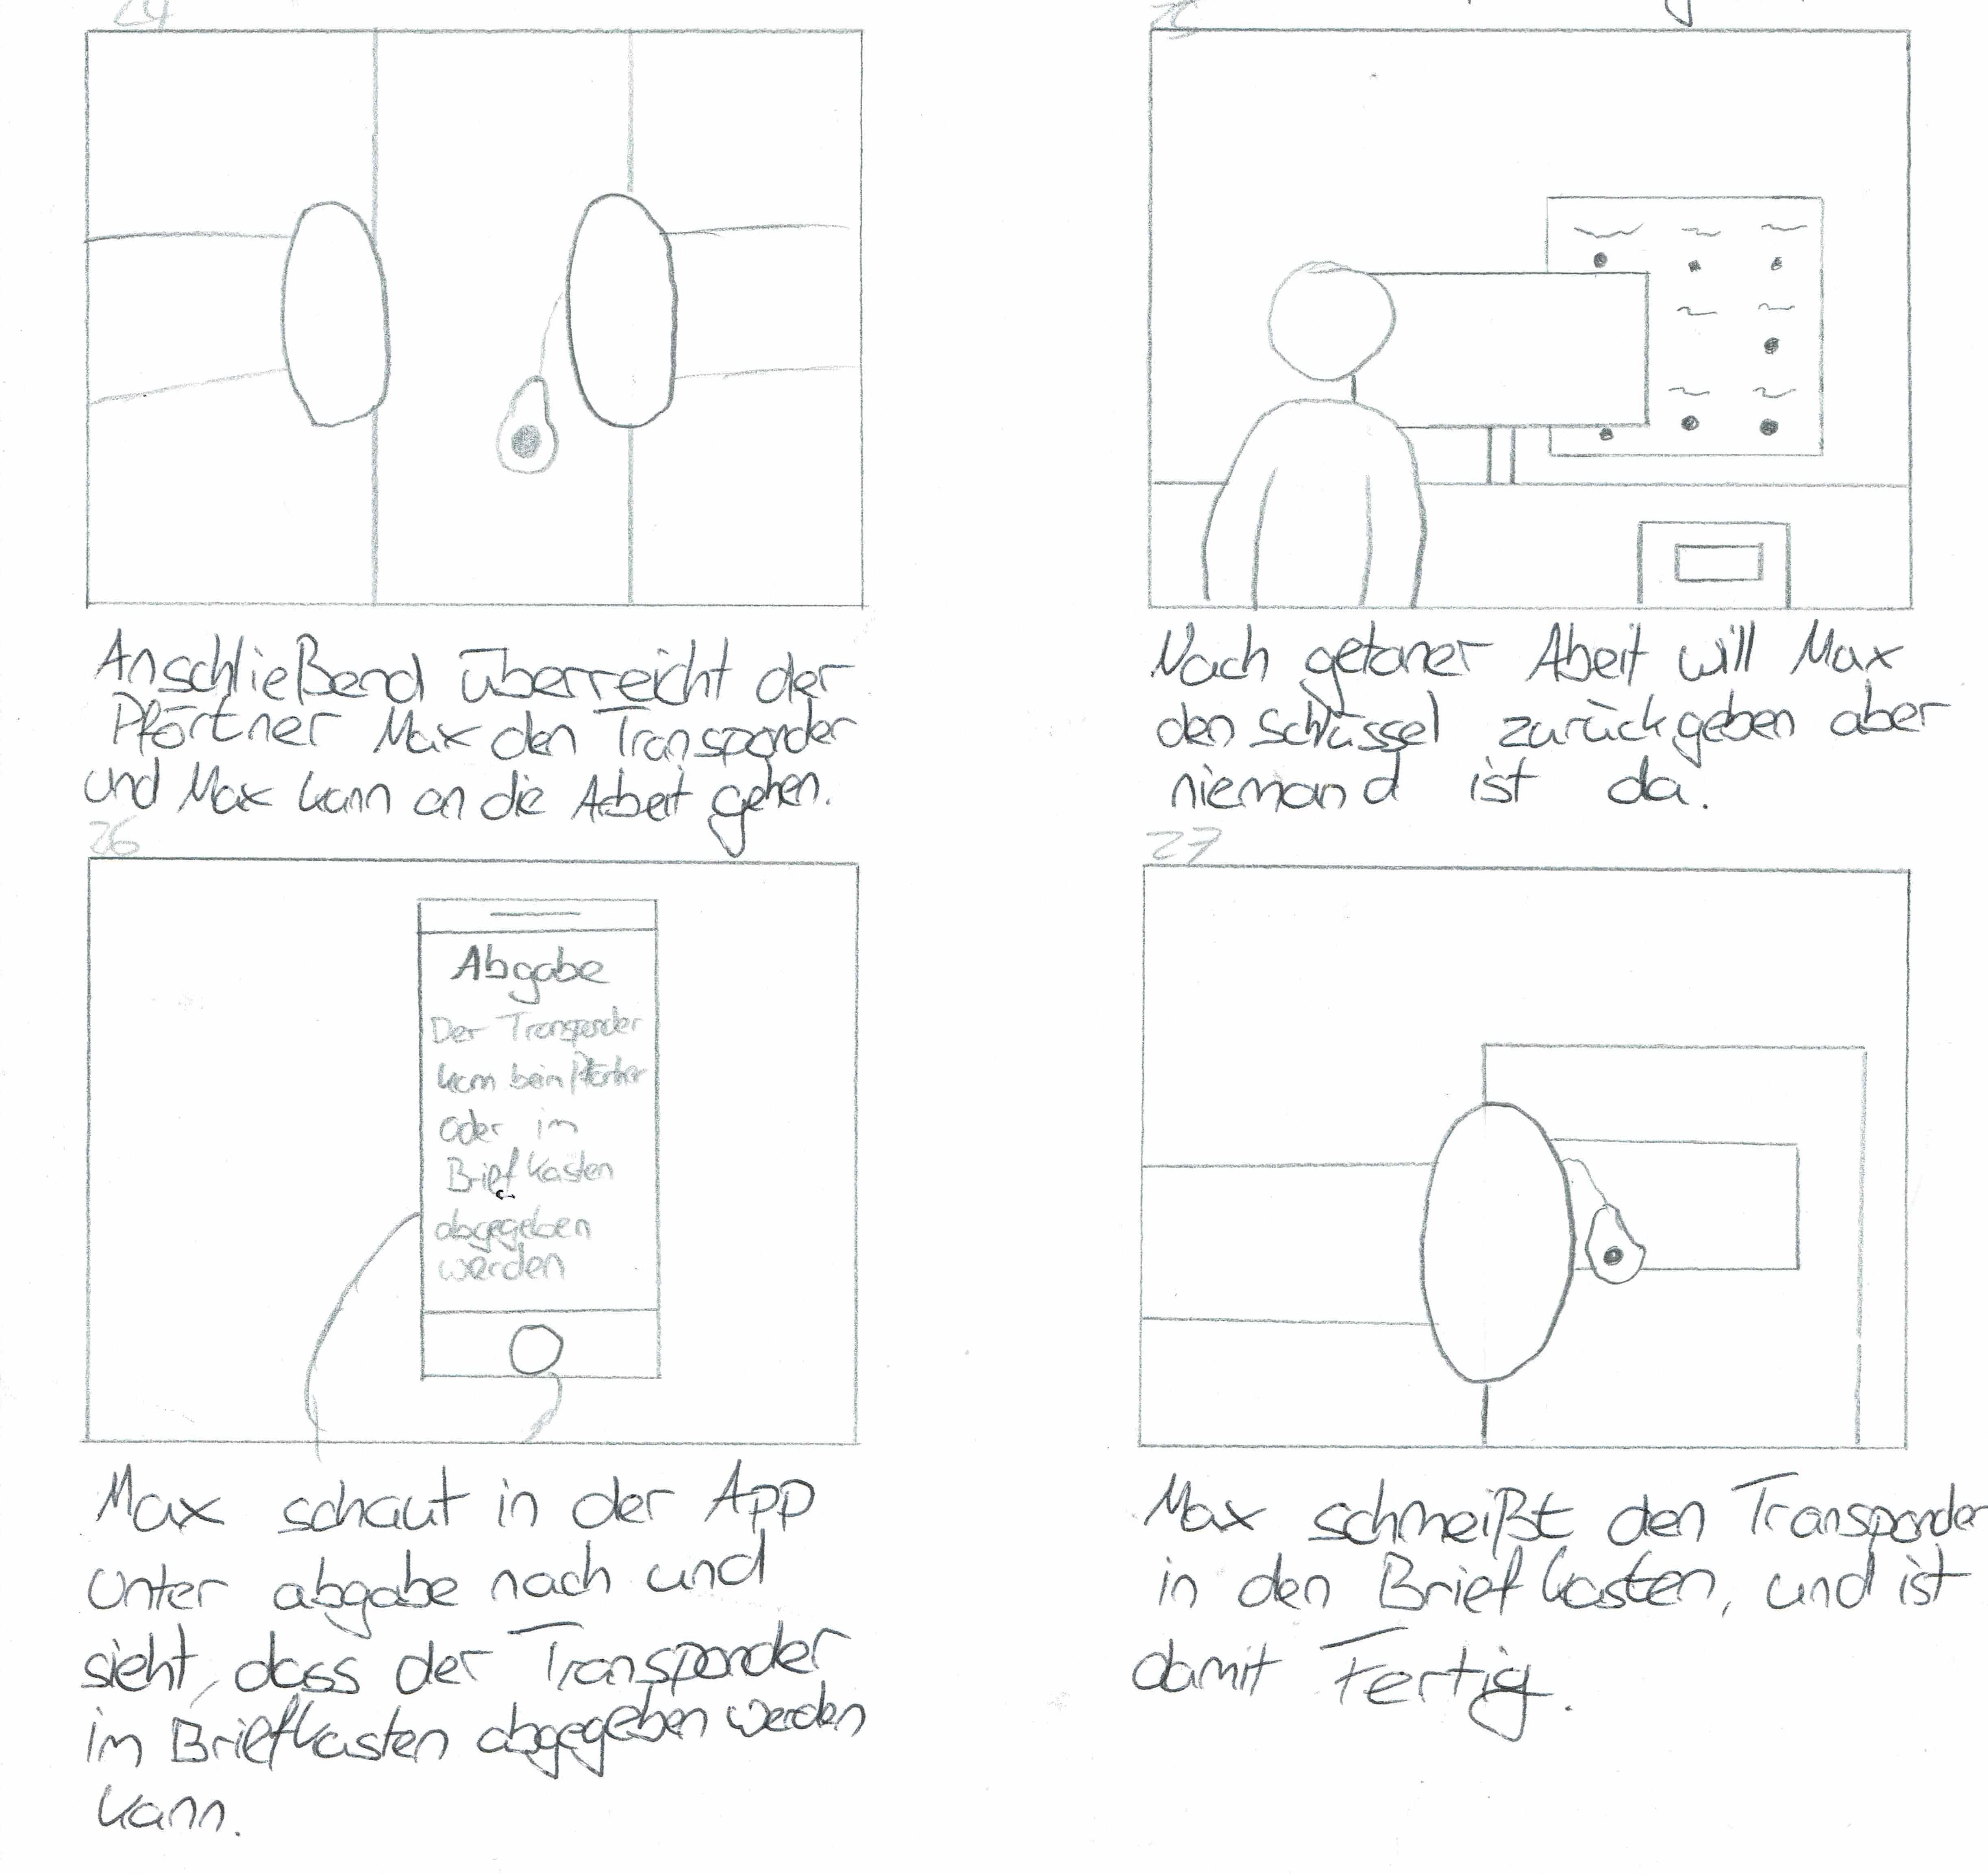 24
Anschließend überreicht der
Pförtner Max den Transponder
und Max kann an die Arbeit gehen.
Nach getaner Abeit will Max
den Schlüssel zurückgeben aber
niemand ist da.
26
Abgabe
Der Transponder
kann beim Pförtner
oder im
Briefkasten
abgegeben
werden
Max schaut in der App
unter abgabe nach und
sieht, dass der Transponder
im Briefkasten abgegeben werden
kann.
27
Max schmeißt den Transponder
in den Briefkasten, und ist
damit Fertig.